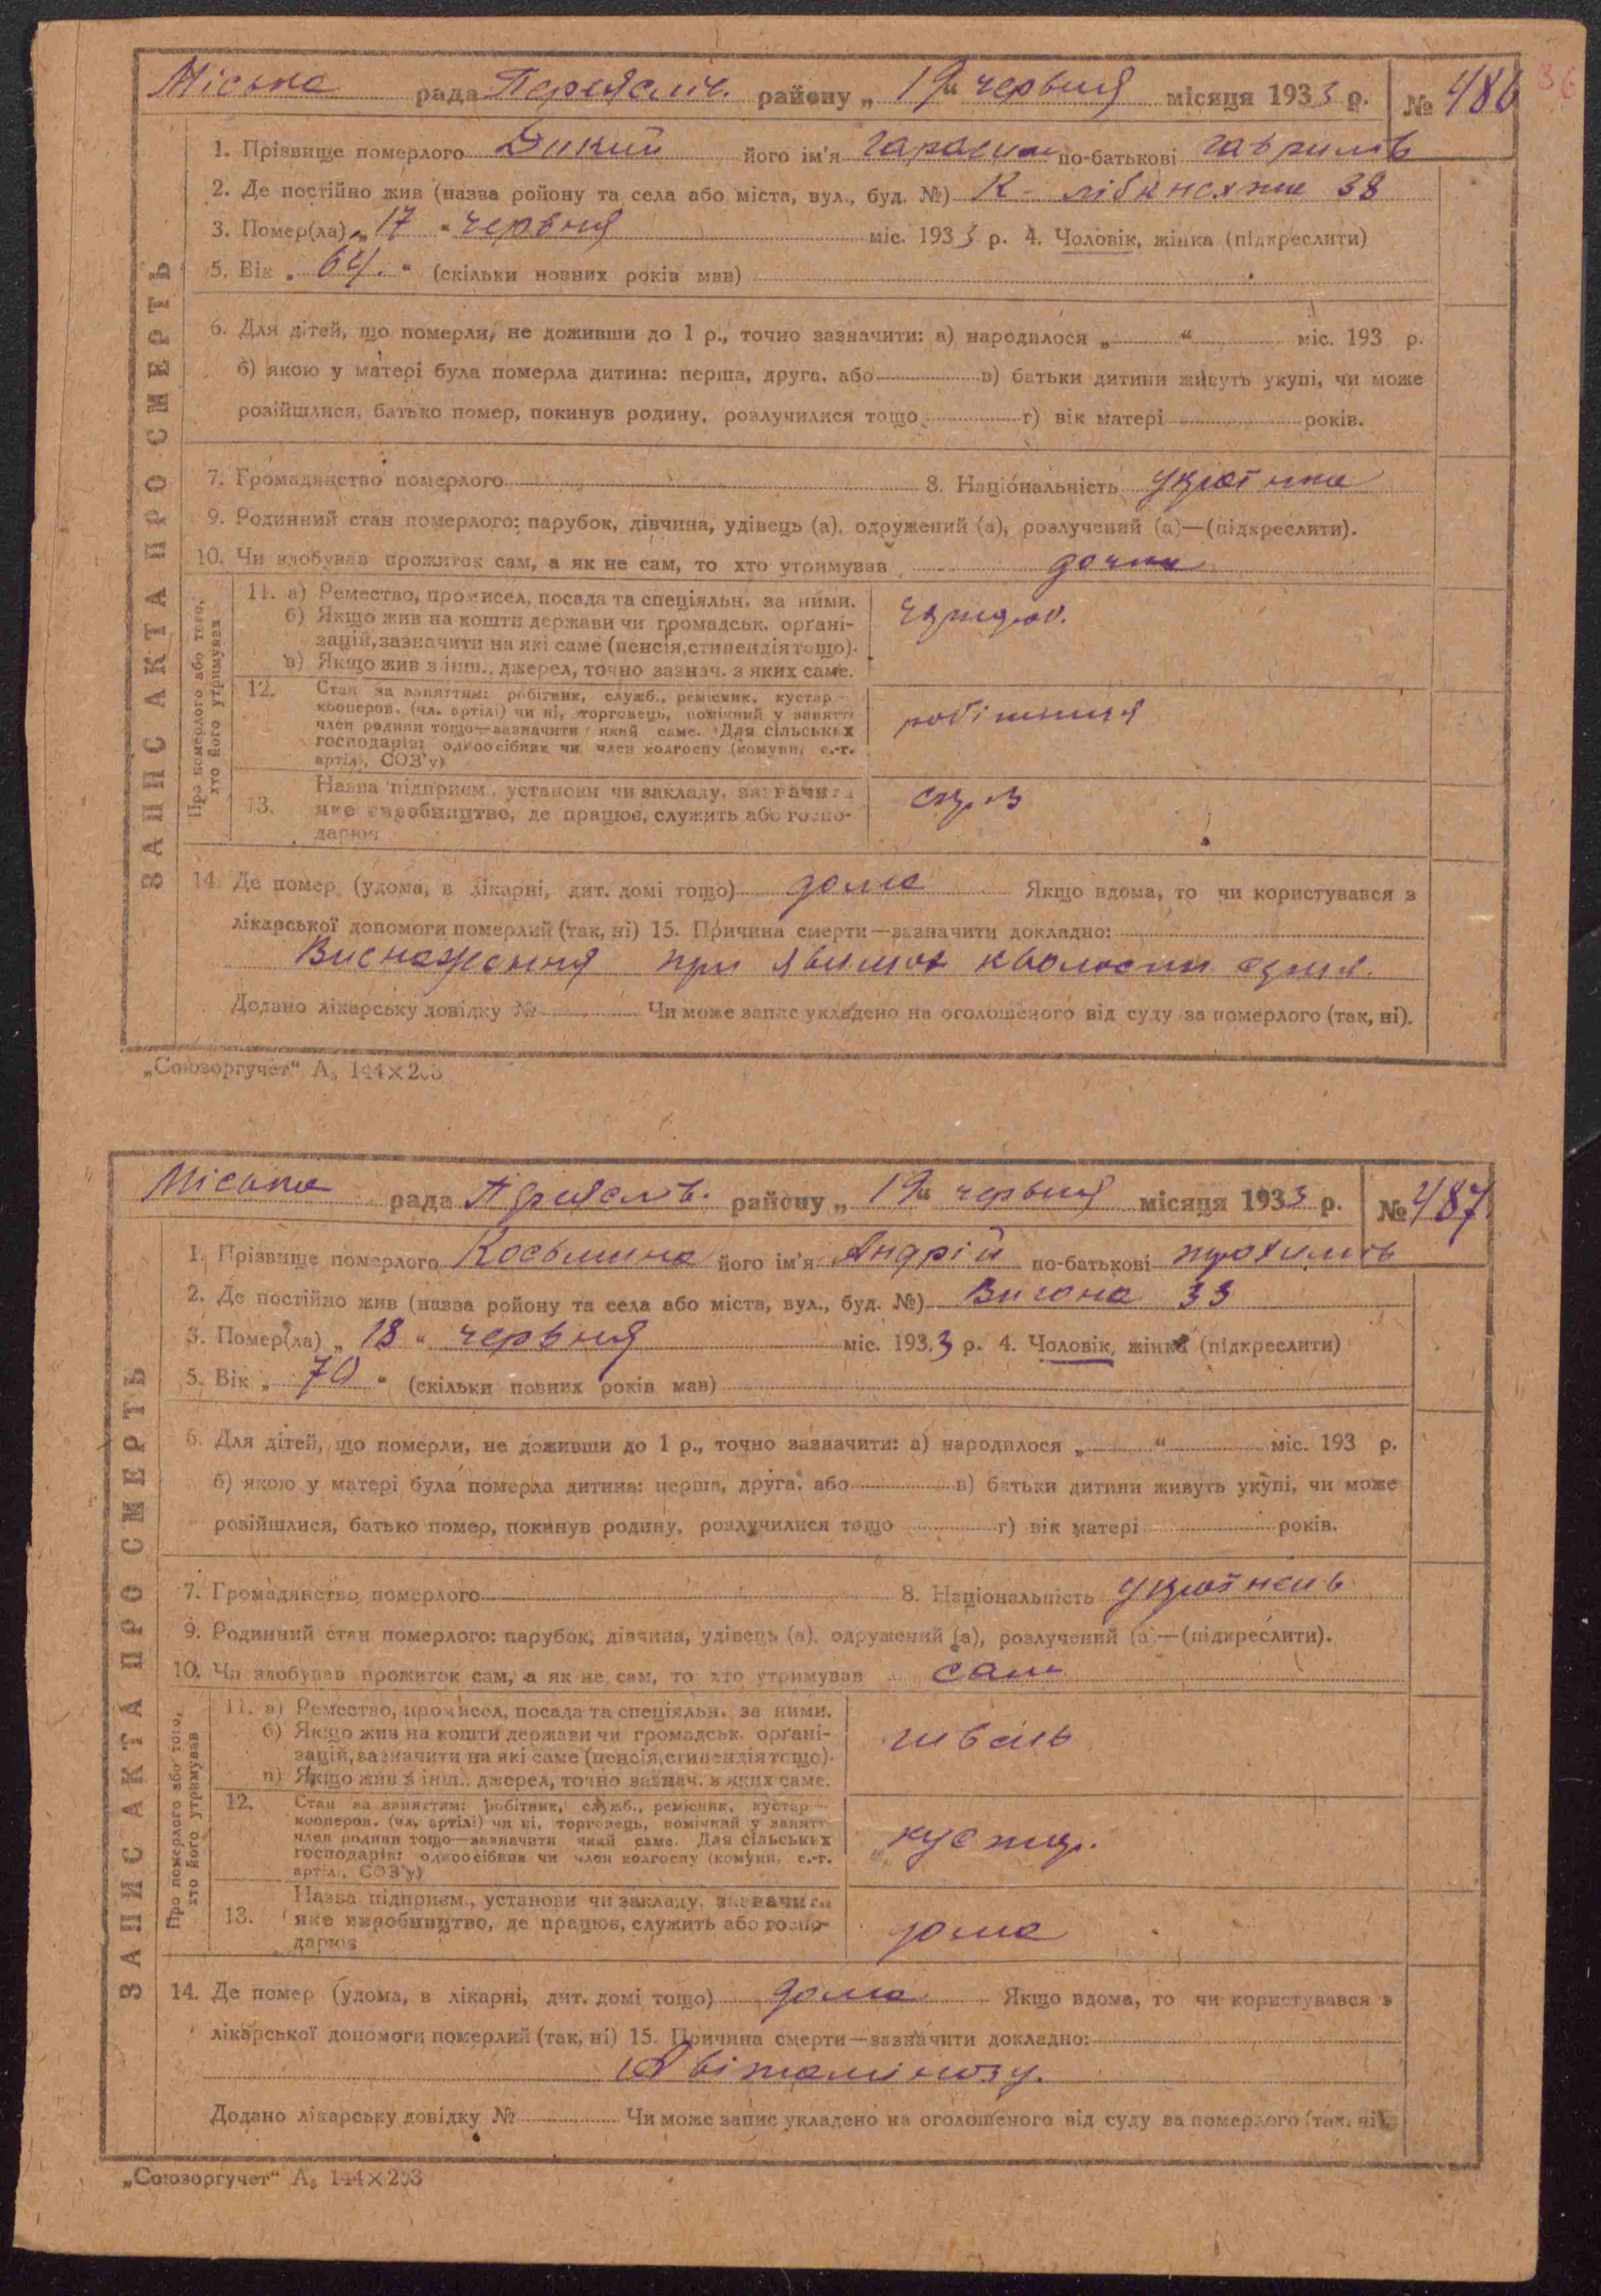 36
Міська рада Переяслів. району „ 19 “ червня місяця 1933 р. № 486
1. Прізвище померлого Дикий його ім'я Гарасим по-батькові Гаврилів
2. Де постійно жив (назва ройону та села або міста, вул., буд. №) К – 38
3. Помер(ла) „ 17 “ червня міс. 1933 р. 4. Чоловік, жінка (підкреслити)
5. Вік „ 64. “ (скільки повних років мав)
6. Для дітей, що померли, не доживши до 1 р., точно зазначити: а) народилося „ “ міс. 193 р.
б) якою у матері була померла дитина: перша, друга, або в) батьки дитини живуть укупі, чи може
розійшлися, батько помер, покинув родину, розлучилися тощо г) вік матері років.
7. Громадянство померлого 8. Національність
9. Родинний стан померлого: парубок, дівчина, удівець (а), одружений (а), розлучений (а)—(підкреслити).
10. Чи здобував прожиток сам, а як не сам, то хто утримував дочка
ЗАПИС АКТА ПРО СМЕРТЬ
Про померлого або того, хто його утримував
11. а) Ремество, промисел, посада та спеціяльн. за ними.
б) Якщо жив на кошти держави чи громадськ. орґані-
зацій, зазначити на які саме (пенсія, стипендія тощо).
в) Якщо жив з інш., джерел, точно зазнач. з яких саме.
12. Стан за заняттям: робітник, служб., ремісник, кустар—
кооперов. (чл. артілі) чи ні, торговець, помічний у занятті
член родини тощо—зазначити який саме. Для сільських
господарів: одноосібник чи член колгоспу (комуни, с.-г.
артілі, СОЗ'у)
робітниця
13. Назва підприєм., установи чи закладу, зазначити
яке виробництво, де працює, служить або госпо-
дарює
14. Де помер (удома, в лікарні, дит. домі тощо) дома Якщо вдома, то чи користувався з
лікарської допомоги померлий (так, ні) 15. Причина смерти—зазначити докладно:
Виснаження при явищах кволости
Додано лікарську довідку № Чи може запис укладено на оголошеного від суду за померлого (так, ні).
„Союзоргучет“ А₅ 144×203
Міська рада Переяслів. району „ 19 “ червня місяця 1933 р. № 487
1. Прізвище померлого Косьмина його ім'я Андрій по-батькові
2. Де постійно жив (назва ройону та села або міста, вул., буд. №) Вигона 33
3. Помер(ла) „ 18 “ червня міс. 1933 р. 4. Чоловік, жінка (підкреслити)
5. Вік „ 70 “ (скільки повних років мав)
6. Для дітей, що померли, не доживши до 1 р., точно зазначити: а) народилося „ “ міс. 193 р.
б) якою у матері була померла дитина: перша, друга, або в) батьки дитини живуть укупі, чи може
розійшлися, батько помер, покинув родину, розлучилися тощо г) вік матері років.
7. Громадянство померлого 8. Національність українець
9. Родинний стан померлого: парубок, дівчина, удівець (а), одружений (а), розлучений (а)—(підкреслити).
10. Чи здобував прожиток сам, а як не сам, то хто утримував сам
ЗАПИС АКТА ПРО СМЕРТЬ
Про померлого або того, хто його утримував
11. а) Ремество, промисел, посада та спеціяльн. за ними.
б) Якщо жив на кошти держави чи громадськ. орґані-
зацій, зазначити на які саме (пенсія, стипендія тощо).
в) Якщо жив з інш., джерел, точно зазнач. з яких саме.
швець
12. Стан за заняттям: робітник, служб., ремісник, кустар—
кооперов. (чл. артілі) чи ні, торговець, помічний у занятті
член родини тощо—зазначити який саме. Для сільських
господарів: одноосібник чи член колгоспу (комуни, с.-г.
артілі, СОЗ'у)
кустар.
13. Назва підприєм., установи чи закладу, зазначити
яке виробництво, де працює, служить або госпо-
дарює
дома
14. Де помер (удома, в лікарні, дит. домі тощо) дома Якщо вдома, то чи користувався з
лікарської допомоги померлий (так, ні) 15. Причина смерти—зазначити докладно:
Авітамінозу.
Додано лікарську довідку № Чи може запис укладено на оголошеного від суду за померлого (так, ні).
„Союзоргучет“ А₅ 144×203